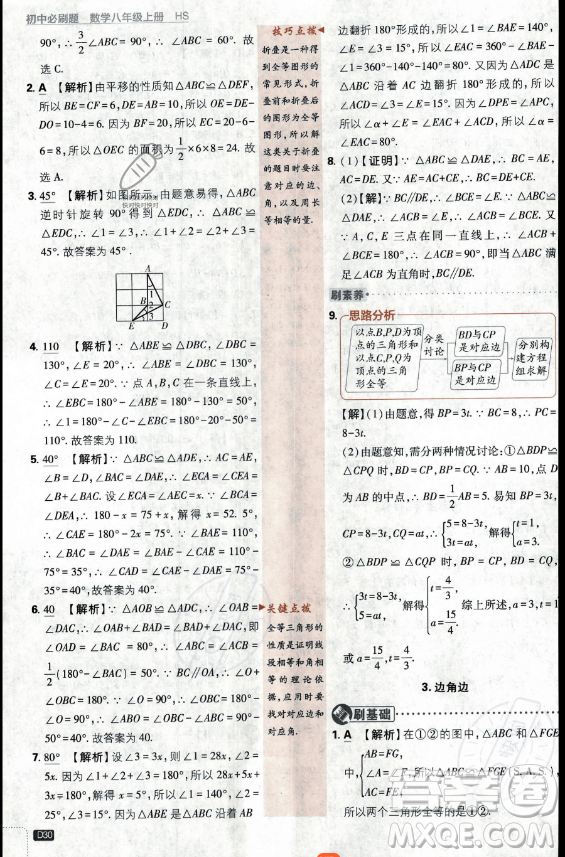 初中必刷题 数学八年级上册 HS
90°,∴ 3/2 ∠C = 90°,∴ ∠C = 60°. 故
选C.
2. A 【解析】由平移的性质知△ABC≌△DEF,
所以 BE = CF = 6, DE = AB = 10, 所以 OE = DE-
DO=10-4=6. 因为 BF=20, 所以 EC=20-6-
6=8, 所以△OEC 的面积为 1/2×6×8=24. 故
选A.
3. 45° 【解析】如图所示, 由题意易得, △ABC
逆时针旋转 90°得到△EDC, ∴ △ABC≌
△EDC, ∴ ∠1 = ∠2, ∴ ∠1+∠3 = ∠2+∠3 =
45°. 故答案为 45°.
A
1
2
B
C
3
E
D
4. 110 【解析】∵ △ABE≌△DBE≌△DBC,
∠E = 20°, ∴ ∠ABE = ∠DBE = ∠DBC = 
∠C = ∠E = 20°. ∵ 点 A, B, C 在一条直线上,
∴ ∠EBC = 180°-∠ABE = 180°-130° = 50°,
∴ ∠1 = 180°-∠C-∠EBC = 180°-20°-50° =
110°. 故答案为 110.
5. 40° 【解析】∵ △ABC≌△ADE, ∴ AC = AE,
∠B = ∠D, ∠BAC = ∠DAE, ∴ ∠AEC = ∠CEA =
∠B+∠BAC. 设∠ECA=∠AEC=x. ∵ ∠BAC=
∠DEA, ∴ 180-x = 75+x, 解得 x = 52.5°,
∴ ∠B = ∠D = 75°. ∵ ∠BAE = 110°,
∴ ∠BAC = ∠DAE = ∠BAE - ∠EAC = 
∠BAC = ∠DAE - ∠CAE = 40°.
6. 40 【解析】∵ △AOB≌△ADC, ∴ ∠OAB =
∠DAC, ∴ ∠OAB+∠BAD = ∠BAD+∠DAC, ∴
∠OAD = ∠BAC = 80°, ∴ ∠ABC = ∠ACB =
1/2(180°-∠BAC)= 50°. ∵ BC∥OA, ∴ ∠OBC =
180°-∠O. ∵ ∠O = 90°, ∴ ∠OBC = 90°,
∴ ∠ABO = ∠OBC-∠ABC = 90°-50° = 40°. 故
答案为 40.
7. 80° 【解析】设∠3=3x, 则∠1=28x, ∠2=
5x. 因为∠1+∠2+∠3 = 180°, 所以 28x+5x+
3x = 180°, 解得 x = 5°, 所以∠1 = 140°, ∠2 =
25°, ∠3=15°. 因为△ABE 是△ABC 沿着 AB
D30
技巧点拨
折叠是一种得
到全等图形的
常见形式, 折
叠前和折叠后
的图形为全等
图形, 所以解
这类关于折叠
的题目时要注
意对应的边、
角, 以及周长
等相等的量.
关键点拨
全等三角形的
性质是证明线
段相等和角相
等的理论依
据, 应用时要
找对对应边和
对应角.
边翻折 180°形成的, 所以∠ACB = ∠E = ∠3 = 15°,
∠2 = ∠EBA = ∠D = 25°, ∠4 = ∠EBA+∠E =
25°+15° = 40°. 又因为△ADC
是△ABC 沿着 AC 边翻折 180°形成的, 所以
∠ACD=∠3=15°. 因为∠DPE=∠APC,
所以∠α+∠E = ∠EAC = 80°, 所以∠α =
∠EAC = 80°.
8. (1)【证明】∵ △ABC≌△DAE, ∴ BC=AE,
AC=DE. 又∵ AE=AC+CE, ∴ BC=DE+CE.
(2)【解】∵ BC∥DE, ∴ ∠BCE=∠E. 又∵ △ABC≌
△DAE, ∴ ∠ACB=∠E, ∴ ∠ACB=∠BCE. 又
∵ A, C, E 三点在同一直线上, ∴ ∠ACB+
∠BCE=180°, ∴ ∠ACB=90°, 即当△ABC 满足
∠ACB 为 90°时, BC∥DE.
刷素养
9. 思路分析
以点B,P,D为顶点的三角形和以点C,P,Q为顶点的三角形全等
分类讨论
BD与CP是对应边
BP与CP是对应边
分别构建方程组求解
【解】(1)由题意, 得 BP=3t. ∵ BC=8, ∴ PC=
8-3t.
(2)由题意知, 需分两种情况讨论: ①△BDP≌
△CPQ 时, BD=CP, BP=CQ. ∵ AB=10, D
为 AB 的中点, ∴ BD= 1/2 AB=5. 易知 BP=3t,
CP=8-3t, CQ=at, ∴ {5=8-3t, 3t=at, 解得 {t=1, a=3.
②△BDP≌△CQP 时, BP=CP, BD=CQ,
∴ {3t=8-3t, 5=at, 解得 {t=4/3, a=15/4. 综上所述, a=3, t=1
或 a=15/4, t=4/3.
3. 边角边
刷基础
1. A 【解析】在①②的图中, ∵ 
{AB=FG, ∠BAC=∠EFG, AC=FE, ∴ △ABC≌△FGE(S.A.S.),
所以两个三角形全等的是①②.
答案圈
MXQE.COM